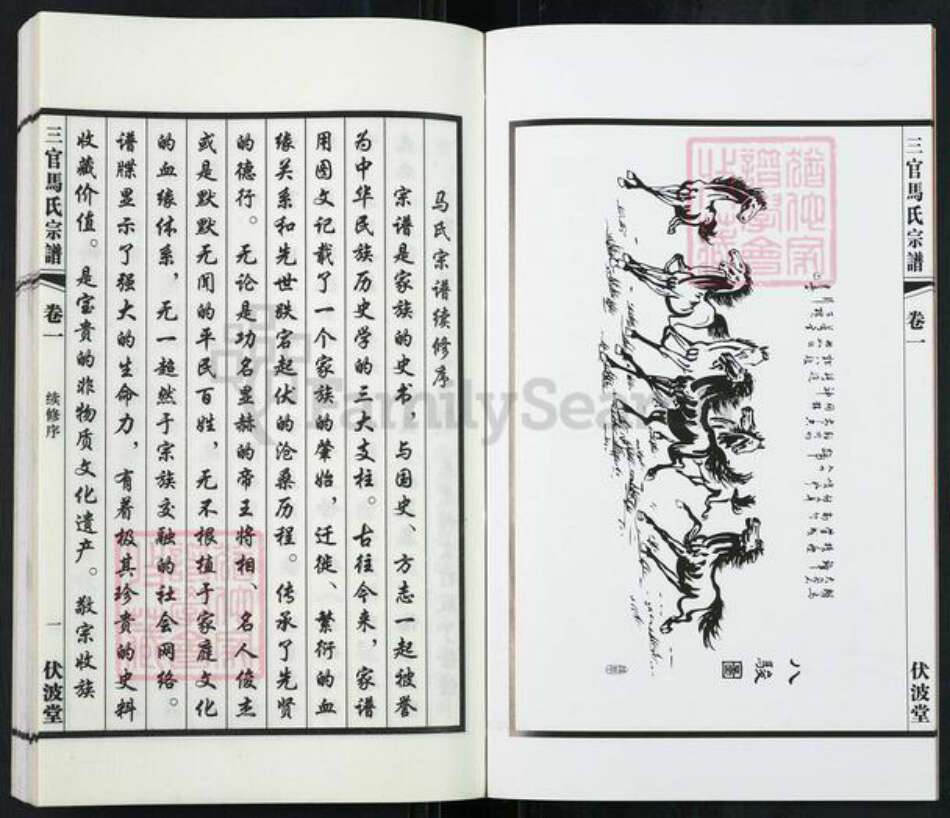 三官馬氏宗譜
卷一
伏波堂
八駿圖
马氏宗谱续修序
宗谱是家族的史书，与国史、方志一起被誉
为中华民族历史学的三大支柱。古往今来，家谱
用图文记载了一个家族的肇始，迁徙、繁衍的血
缘关系和先世跌宕起伏的沧桑历程。传承了先贤
的德行。无论是功名显赫的帝王将相、名人俊杰
或是默默无闻的平民百姓，无不根植于家庭文化
的血缘体系，无一超然于宗族交融的社会网络。
谱牒显示了强大的生命力，有着极其珍贵的史料
收藏价值。是宝贵的非物质文化遗产。敬宗收族
三官馬氏宗譜
卷一
续修序
一
伏波堂
FamilySear